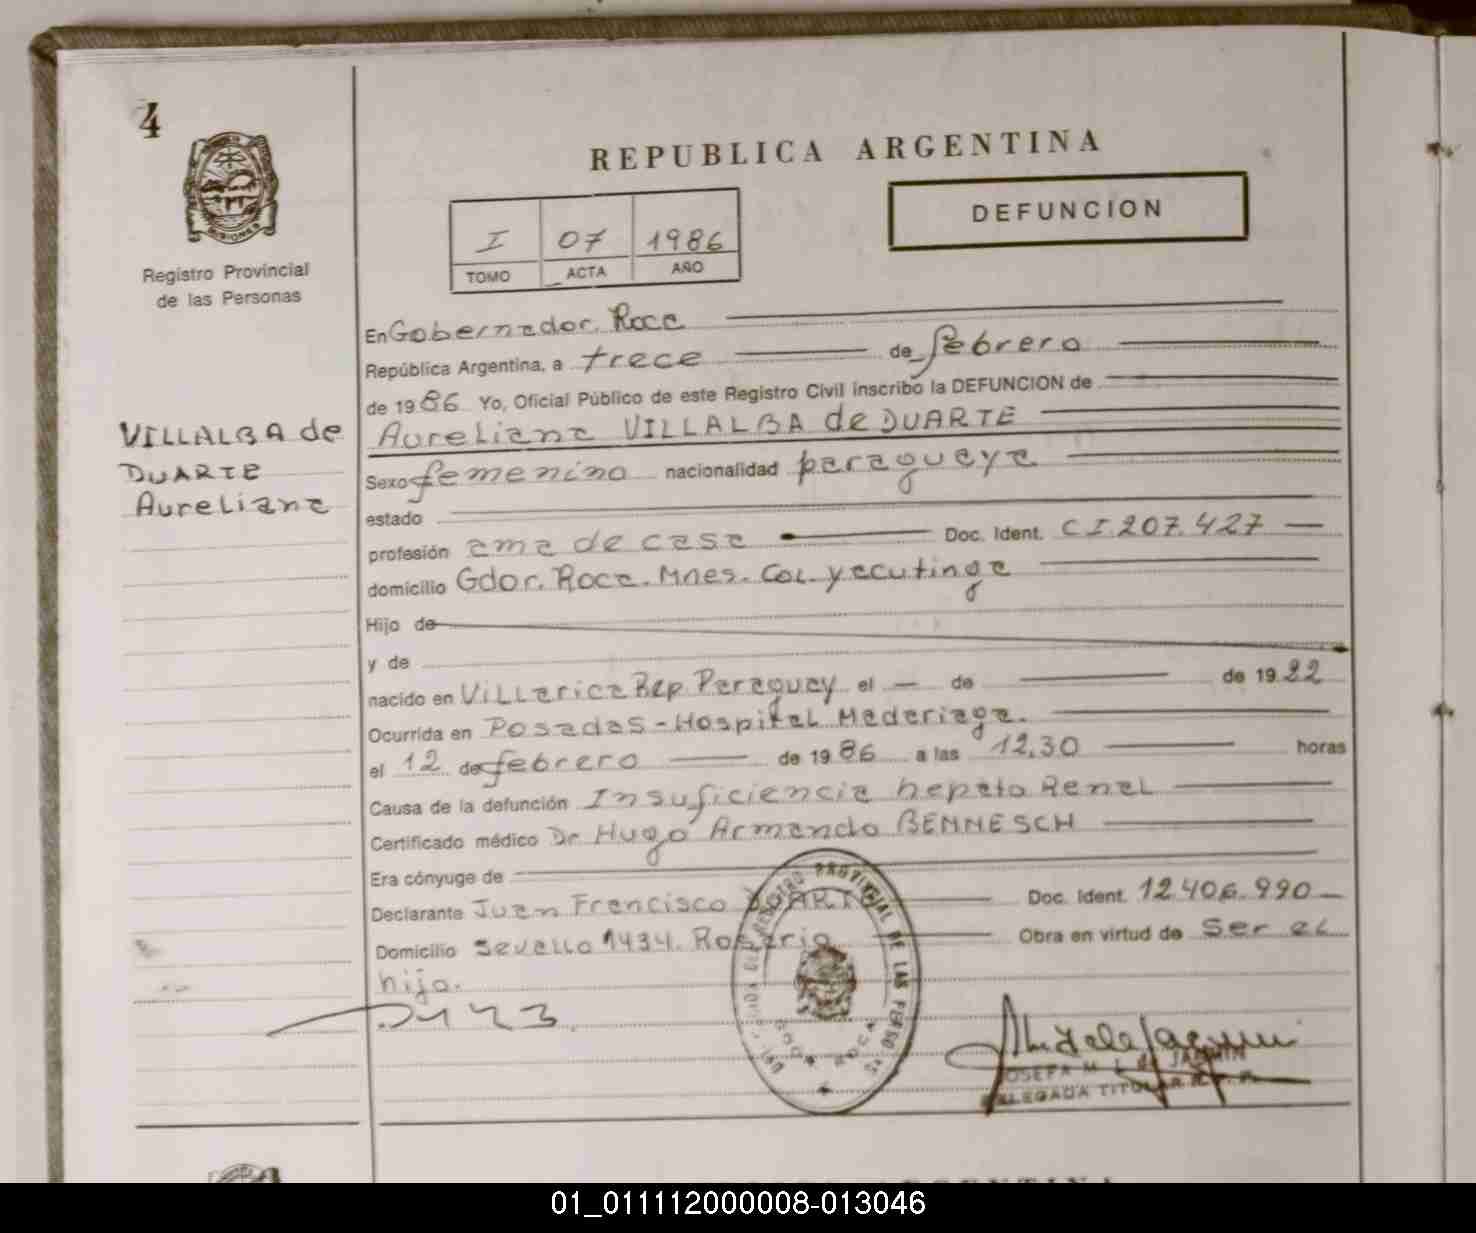 4
REPUBLICA ARGENTINA
DEFUNCION
I 07 1986
TOMO ACTA AÑO
MISIONES
Registro Provincial
de las Personas
En Gobernador Roca
República Argentina, a trece de febrero
de 1986 Yo, Oficial Público de este Registro Civil inscribo la DEFUNCION de
VILLALBA de
DUARTE
Aureliana
Aureliana VILLALBA de DUARTE
Sexo femenino nacionalidad paraguaya
estado
profesión ama de casa Doc. Ident. C I.207.427
domicilio Gdor. Roca. Mnes. Col. yacutinga
Hijo de
y de
nacido en Villarica Rep. Paraguay el — de de 1922
Ocurrida en Posadas - Hospital Madariaga.
el 12 de febrero de 1986 a las 12,30 horas
Causa de la defunción Insuficiencia hepato Renal
Certificado médico Dr Hugo Armando BENMESCH
Era cónyuge de
Declarante Juan Francisco DUARTE Doc. Ident. 12.406.990
Domicilio Sevello 1434. Rosario Obra en virtud de Ser el
hijo.
REGISTRO PROVINCIAL DE LAS PERSONAS
GDOR ROCA
JOSEFA M L de
DELEGADA TITULAR R. P. P.
01_011112000008-013046